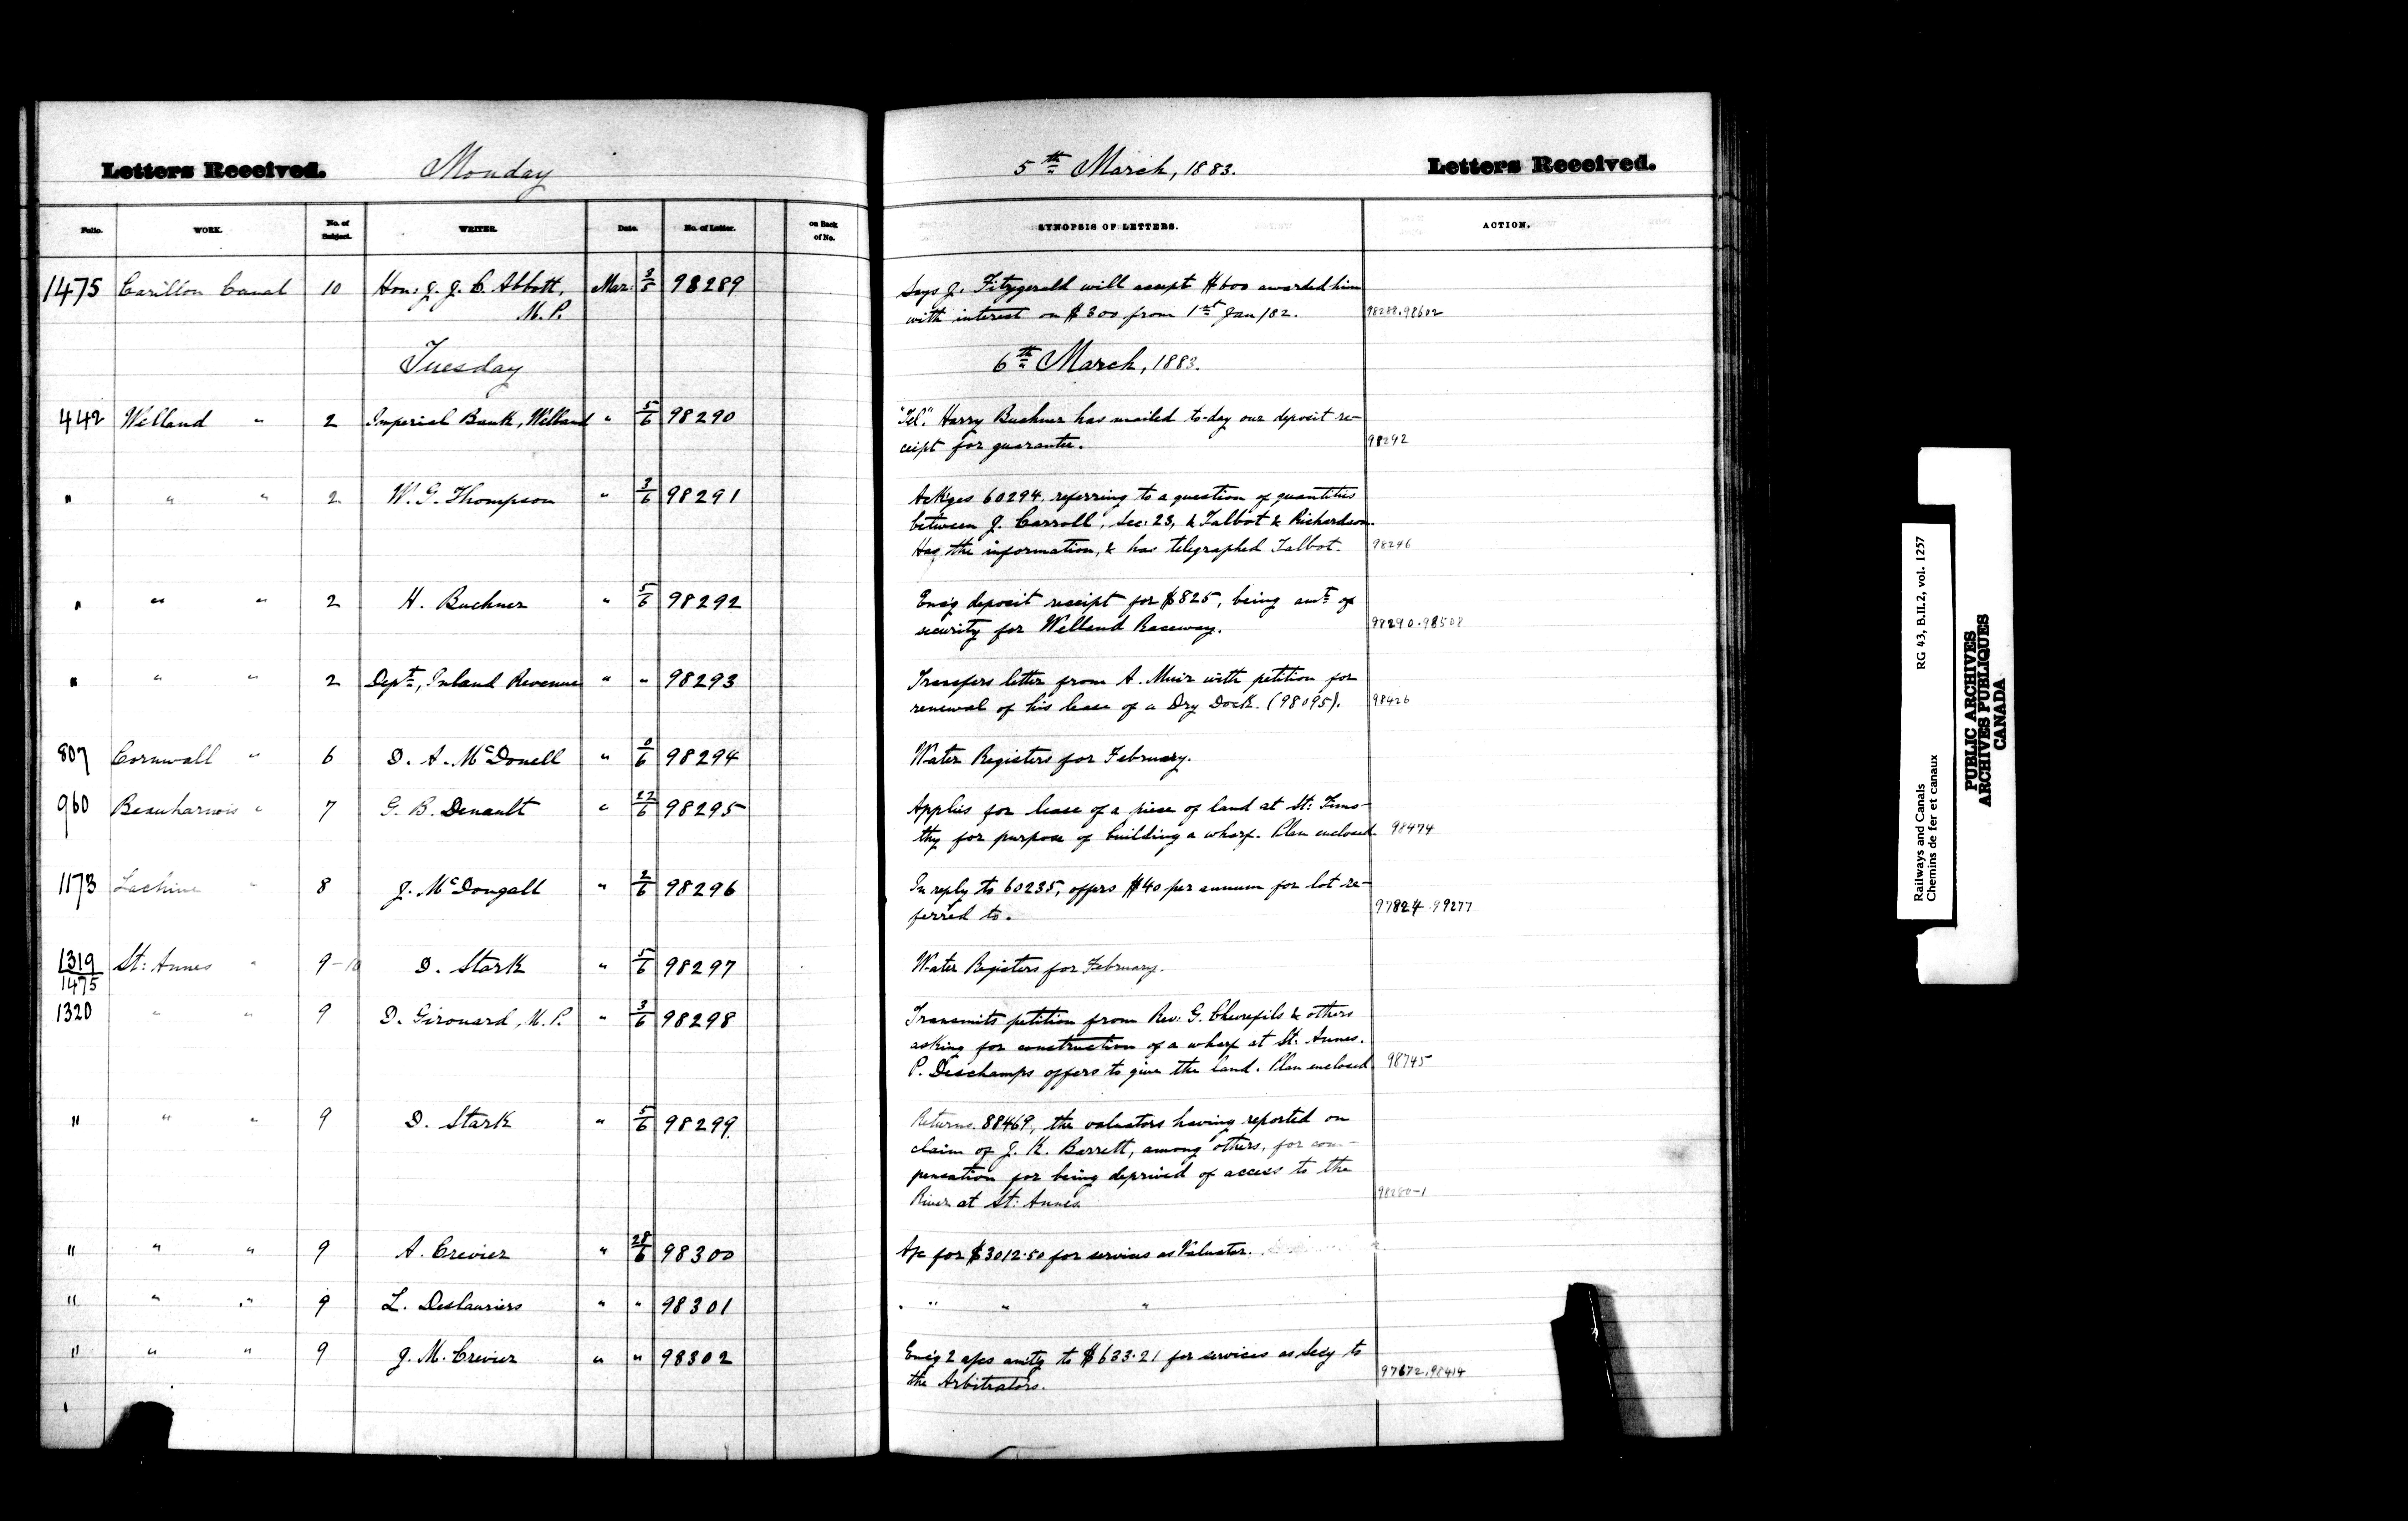 Letters Received. Monday
5th March, 1883. Letters Received.
Folio. WORK. No. of Subject. WRITER. Date. No. of Letter. on Back of No.
SYNOPSIS OF LETTERS. ACTION.
1475 Carillon Canal 10 Hon: J. J. C. Abbott, Mar: 3/5 98289
M. P.
Says J. Fitzgerald will accept $600 awarded him
with interest on $300 from 1st Jan/82. 98288,98602
Tuesday
6th March, 1883.
442 Welland " 2 Imperial Bank, Welland " 5/6 98290
"Tel." Harry Buchner has mailed to-day our deposit re-
ceipt for guarantee. 98292
" " " 2 W. G. Thompson " 3/6 98291
Ack'ges 60294, referring to a question of quantities
between J. Carroll, Sec: 23, & Talbot & Richardson.
Has the information, & has telegraphed Talbot. 98246
" " " 2 H. Buchner " 5/6 98292
Enc'g deposit receipt for $825, being amt of
security for Welland Raceway. 98290.98508
" " " 2 Dept, Inland Revenue " " 98293
Transfers letter from A. Muir with petition for
renewal of his lease of a Dry Dock. (98095). 98426
807 Cornwall " 6 D. A. McDonell " 0/6 98294
Water Registers for February.
960 Beauharnois " 7 G. B. Denault " 27/6 98295
Applies for lease of a piece of land at St: Timo-
thy for purpose of building a wharf. Plan enclosed. 98474
1173 Lachine " 8 J. McDougall " 2/6 98296
In reply to 60235, offers $40 per annum for lot re-
ferred to. 97824.99277
1319/1475 St: Annes " 9-10 D. Stark " 5/6 98297
Water Registers for February.
1320 " " 9 D. Girouard, M. P. " 3/6 98298
Transmits petition from Rev: G. Chevrefils & others
asking for construction of a wharf at St. Annes.
P. Deschamps offers to give the land. Plan enclosed. 98745
" " " 9 D. Stark " 5/6 98299
Returns 88469, the valuators having reported on
claim of J. K. Barrett, among others, for com-
pensation for being deprived of access to the
River at St: Annes. 98280-1
" " " 9 A. Crevier " 28/6 98300
A/c for $3012.50 for services as Valuator.
" " " 9 L. Deslauriers " " 98301
" " "
" " " 9 J. M. Crevier " " 98302
Enc'g 2 a/cs amtg to $633.21 for services as Secy to
the Arbitrators. 97672,98414
Railways and Canals RG 43, B.II.2, vol. 1257
Chemins de fer et canaux
PUBLIC ARCHIVES
ARCHIVES PUBLIQUES
CANADA